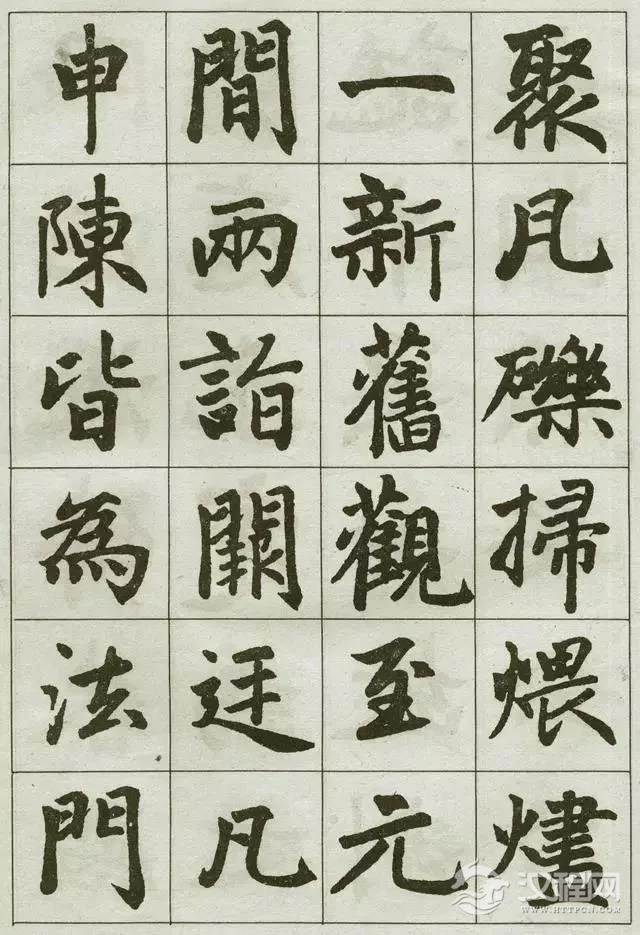 聚瓦礫掃煨燼
一新舊觀至元
間兩詣闕廷凡
申陳皆為法門
汉程网
WWW.HTTPCN.COM